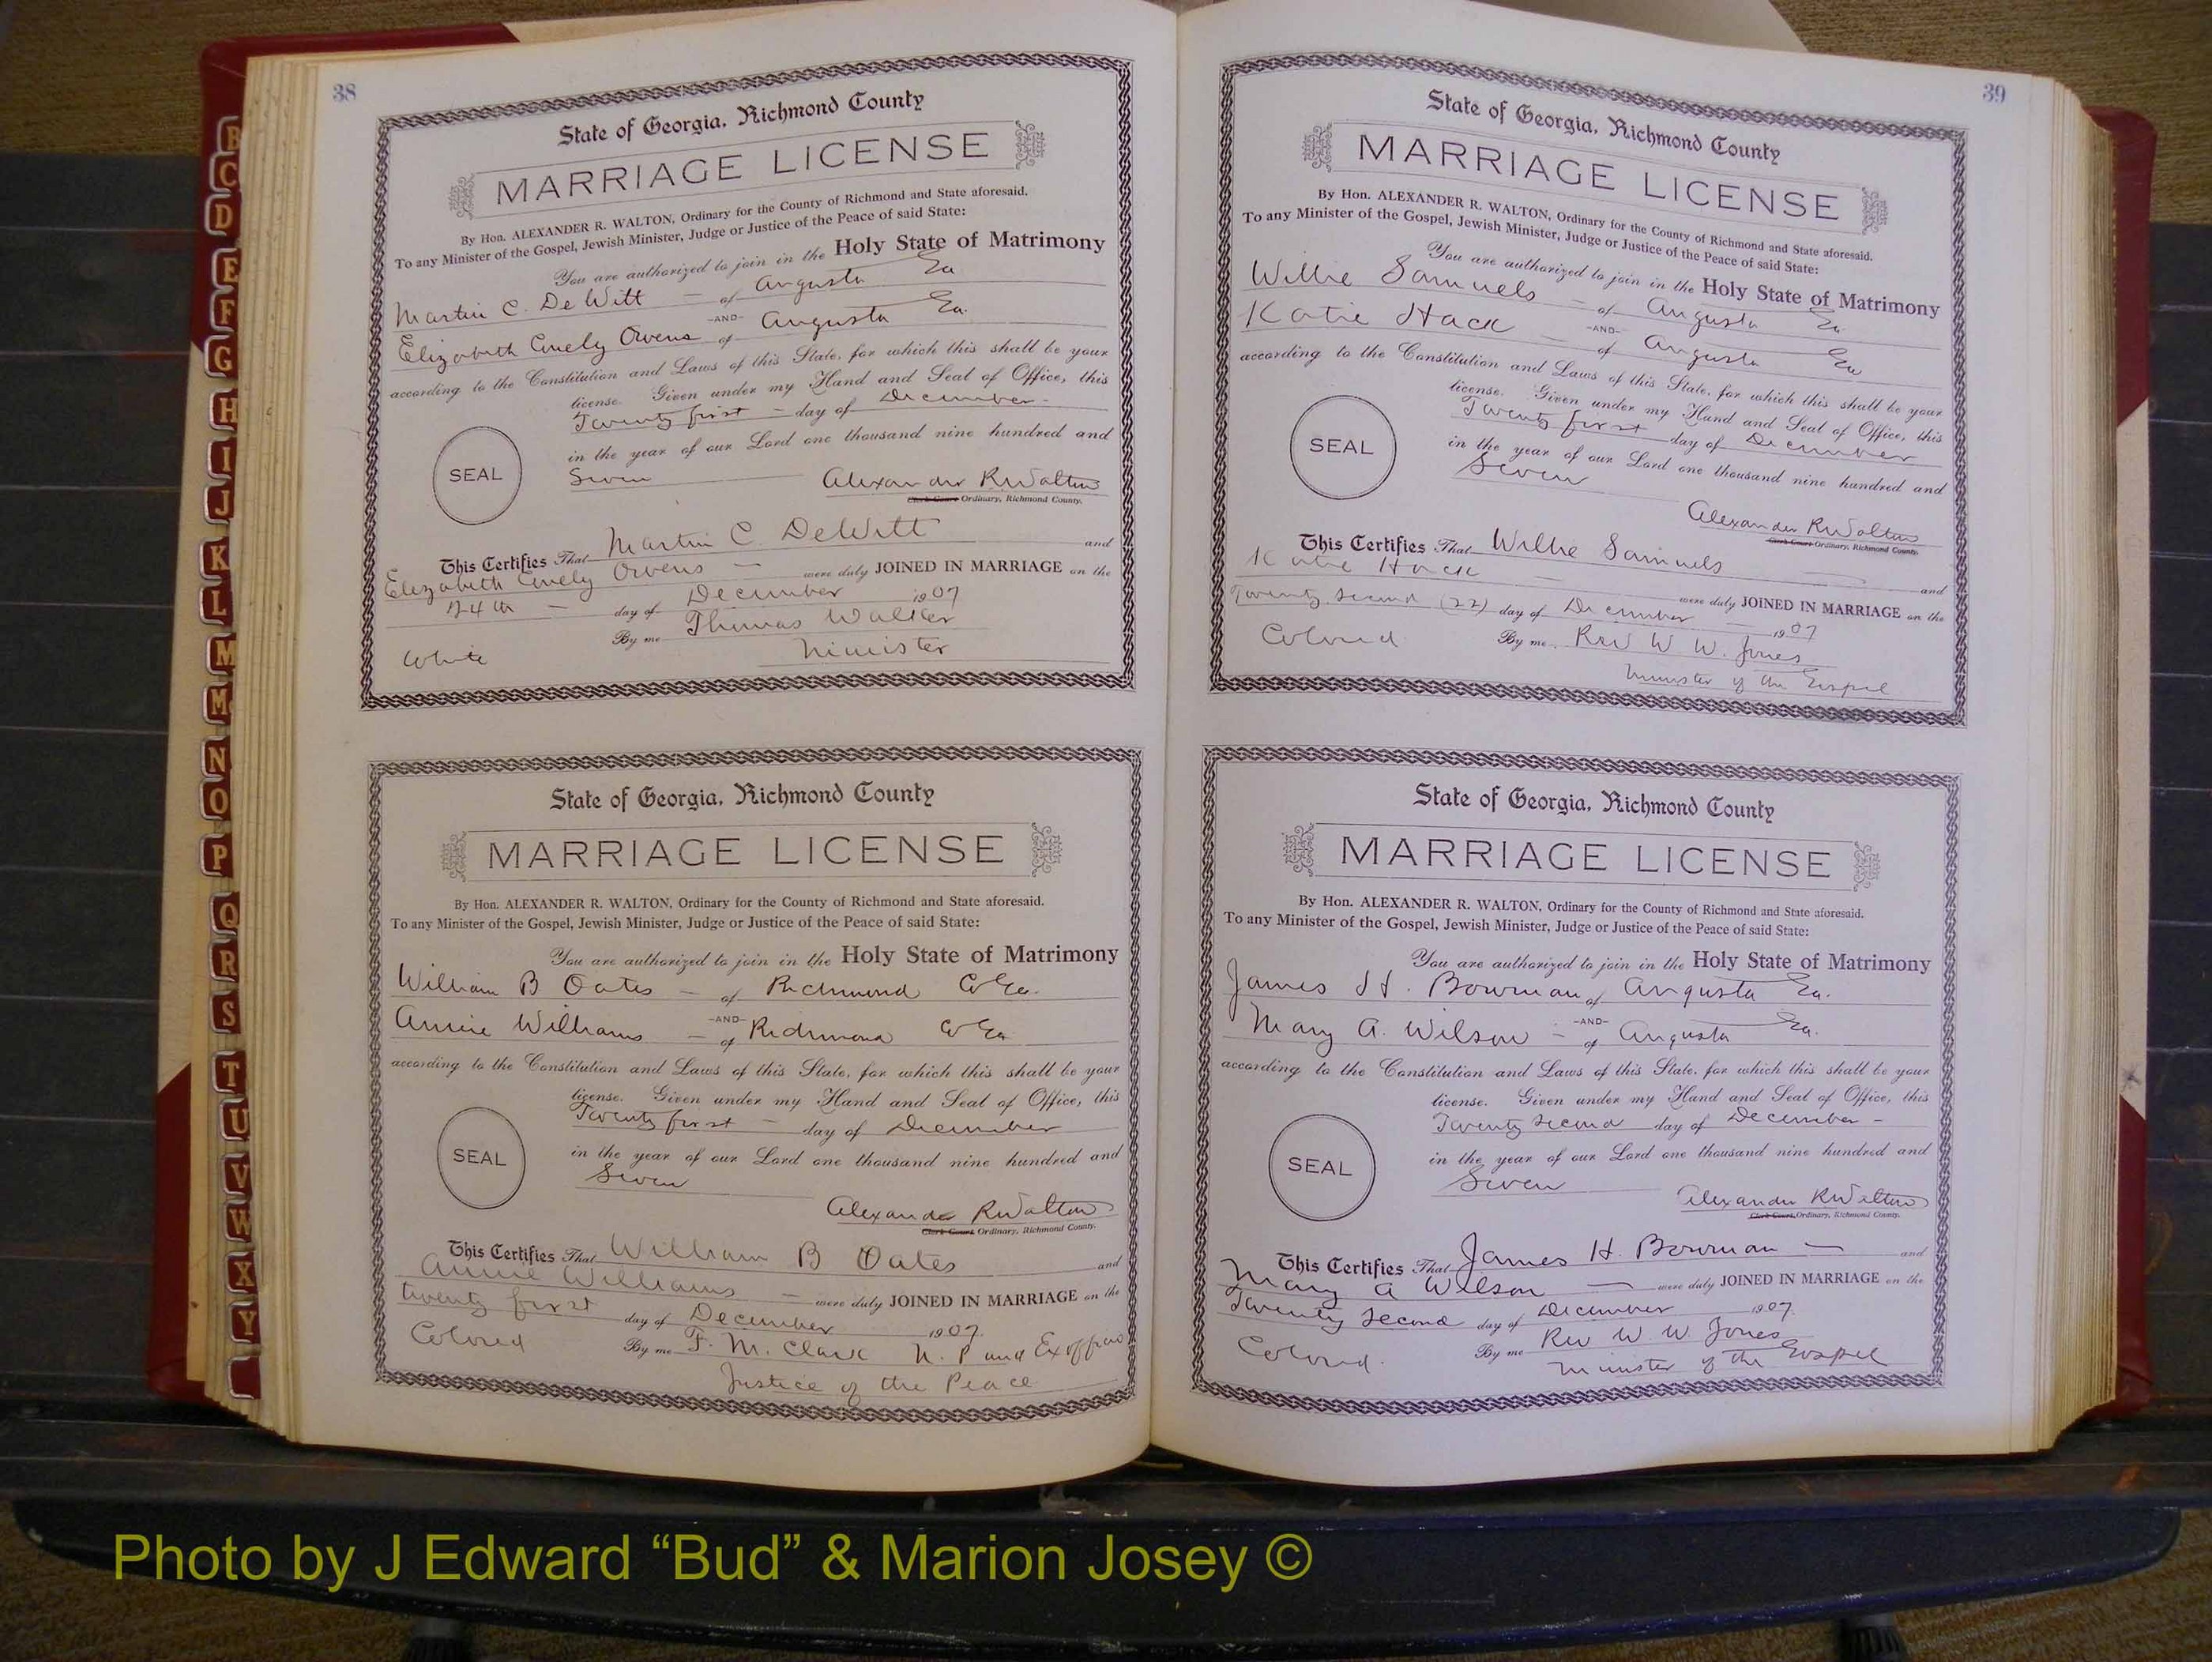 38
State of Georgia, Richmond County
MARRIAGE LICENSE
By Hon. ALEXANDER R. WALTON, Ordinary for the County of Richmond and State aforesaid.
To any Minister of the Gospel, Jewish Minister, Judge or Justice of the Peace of said State:
You are authorized to join in the Holy State of Matrimony
Martin C. DeWitt — of Augusta Ga
-AND-
Elizabeth Owens of Augusta Ga.
according to the Constitution and Laws of this State, for which this shall be your
license. Given under my Hand and Seal of Office, this
Twenty first — day of December
in the year of our Lord one thousand nine hundred and
SEAL
Seven
Alexander R Walton
Clerk Court Ordinary, Richmond County.
This Certifies That Martin C. DeWitt and
Elizabeth Owens — were duly JOINED IN MARRIAGE on the
24th — day of December 1907
By me Thomas Walker
White Minister
State of Georgia, Richmond County
MARRIAGE LICENSE
By Hon. ALEXANDER R. WALTON, Ordinary for the County of Richmond and State aforesaid.
To any Minister of the Gospel, Jewish Minister, Judge or Justice of the Peace of said State:
You are authorized to join in the Holy State of Matrimony
William B Oates — of Richmond Co Ga.
-AND-
Annie Williams — of Richmond Co Ga
according to the Constitution and Laws of this State, for which this shall be your
license. Given under my Hand and Seal of Office, this
Twenty first — day of December
in the year of our Lord one thousand nine hundred and
SEAL
Seven
Alexander R Walton
Clerk Court Ordinary, Richmond County.
This Certifies That William B Oates and
Annie Williams — were duly JOINED IN MARRIAGE on the
twenty first day of December 1907.
Colored By me F. M. Clark N. P and Ex officio
Justice of the Peace
39
State of Georgia, Richmond County
MARRIAGE LICENSE
By Hon. ALEXANDER R. WALTON, Ordinary for the County of Richmond and State aforesaid.
To any Minister of the Gospel, Jewish Minister, Judge or Justice of the Peace of said State:
You are authorized to join in the Holy State of Matrimony
Willie Samuels — of Augusta Ga
-AND-
Katie Hack — of Augusta Ga
according to the Constitution and Laws of this State, for which this shall be your
license. Given under my Hand and Seal of Office, this
Twenty first day of December
in the year of our Lord one thousand nine hundred and
SEAL
Seven
Alexander R Walton
Clerk Court Ordinary, Richmond County.
This Certifies That Willie Samuels and
Katie Hack — were duly JOINED IN MARRIAGE on the
Twenty Second (22) day of December 1907
Colored By me Rev W W. Jones
Minister of the Gospel
State of Georgia, Richmond County
MARRIAGE LICENSE
By Hon. ALEXANDER R. WALTON, Ordinary for the County of Richmond and State aforesaid.
To any Minister of the Gospel, Jewish Minister, Judge or Justice of the Peace of said State:
You are authorized to join in the Holy State of Matrimony
James H. Bowman of Augusta Ga.
-AND-
Mary A. Wilson — of Augusta Ga.
according to the Constitution and Laws of this State, for which this shall be your
license. Given under my Hand and Seal of Office, this
Twenty Second day of December —
in the year of our Lord one thousand nine hundred and
SEAL
Seven
Alexander R Walton
Clerk Court, Ordinary, Richmond County.
This Certifies That James H. Bowman — and
Mary A Wilson — were duly JOINED IN MARRIAGE on the
Twenty Second day of December 1907.
Colored. By me Rev W. W. Jones
Minister of the Gospel
B
C
D
E
F
G
H
I
J
K
L
M
M
N
O
P
Q
R
S
T
U
V
W
X
Y
Photo by J Edward “Bud” & Marion Josey ©